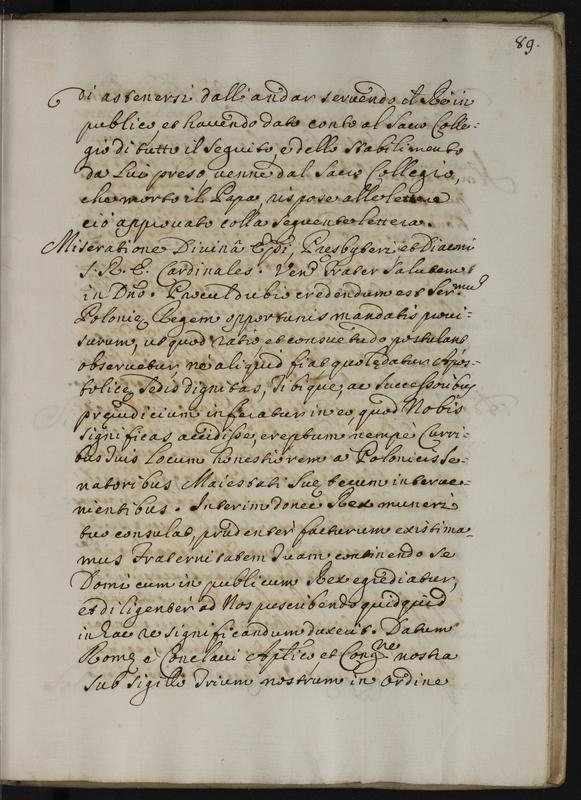 89.
di astenersi dall'andar servendo il Rè in
publico et havendo dato conto al Sacro Colle-
gio di tutto il seguito, e dello stabilimento
da Lui preso venne dal Sacro Collegio,
che morto il Papa, rispose alle lettere
ciò approvato colla seguente lettera.
Miseratione Divinâ Epi, Presbyteri et Diaconi
S. R. E. Cardinales. Vend Frater Salutem
in Dno. Procul dubio credendum est Sermum
Polonię Regem opportunis mandatis provi-
surum, ut quod ratio et consuetudo postulant
observetur, ne aliquid fiat quo lędatur Apos-
tolicę Sedis dignitas, Tibique, ac Successoribus
pręiudicium inferatur in eo, quod Nobis
significas accidisse, ereptum nempè Curri-
bus tuis Locum honestiorem a Polonicis Se-
natoribus Maiestati Suę tecum interve-
nientibus. Interim donec Rex muneri
tuo consulat, prudenter facturum existima-
mus Fraternitatem Tuam continendo se
Domi cum in publicum Rex egrediatur,
et diligenter ad Nos prescribendo quidquid
in hac re significandum duxerit. Datum
Romę è Conclavi Aplico, et Congne nostra
sub sigillo trium nostrum in ordine